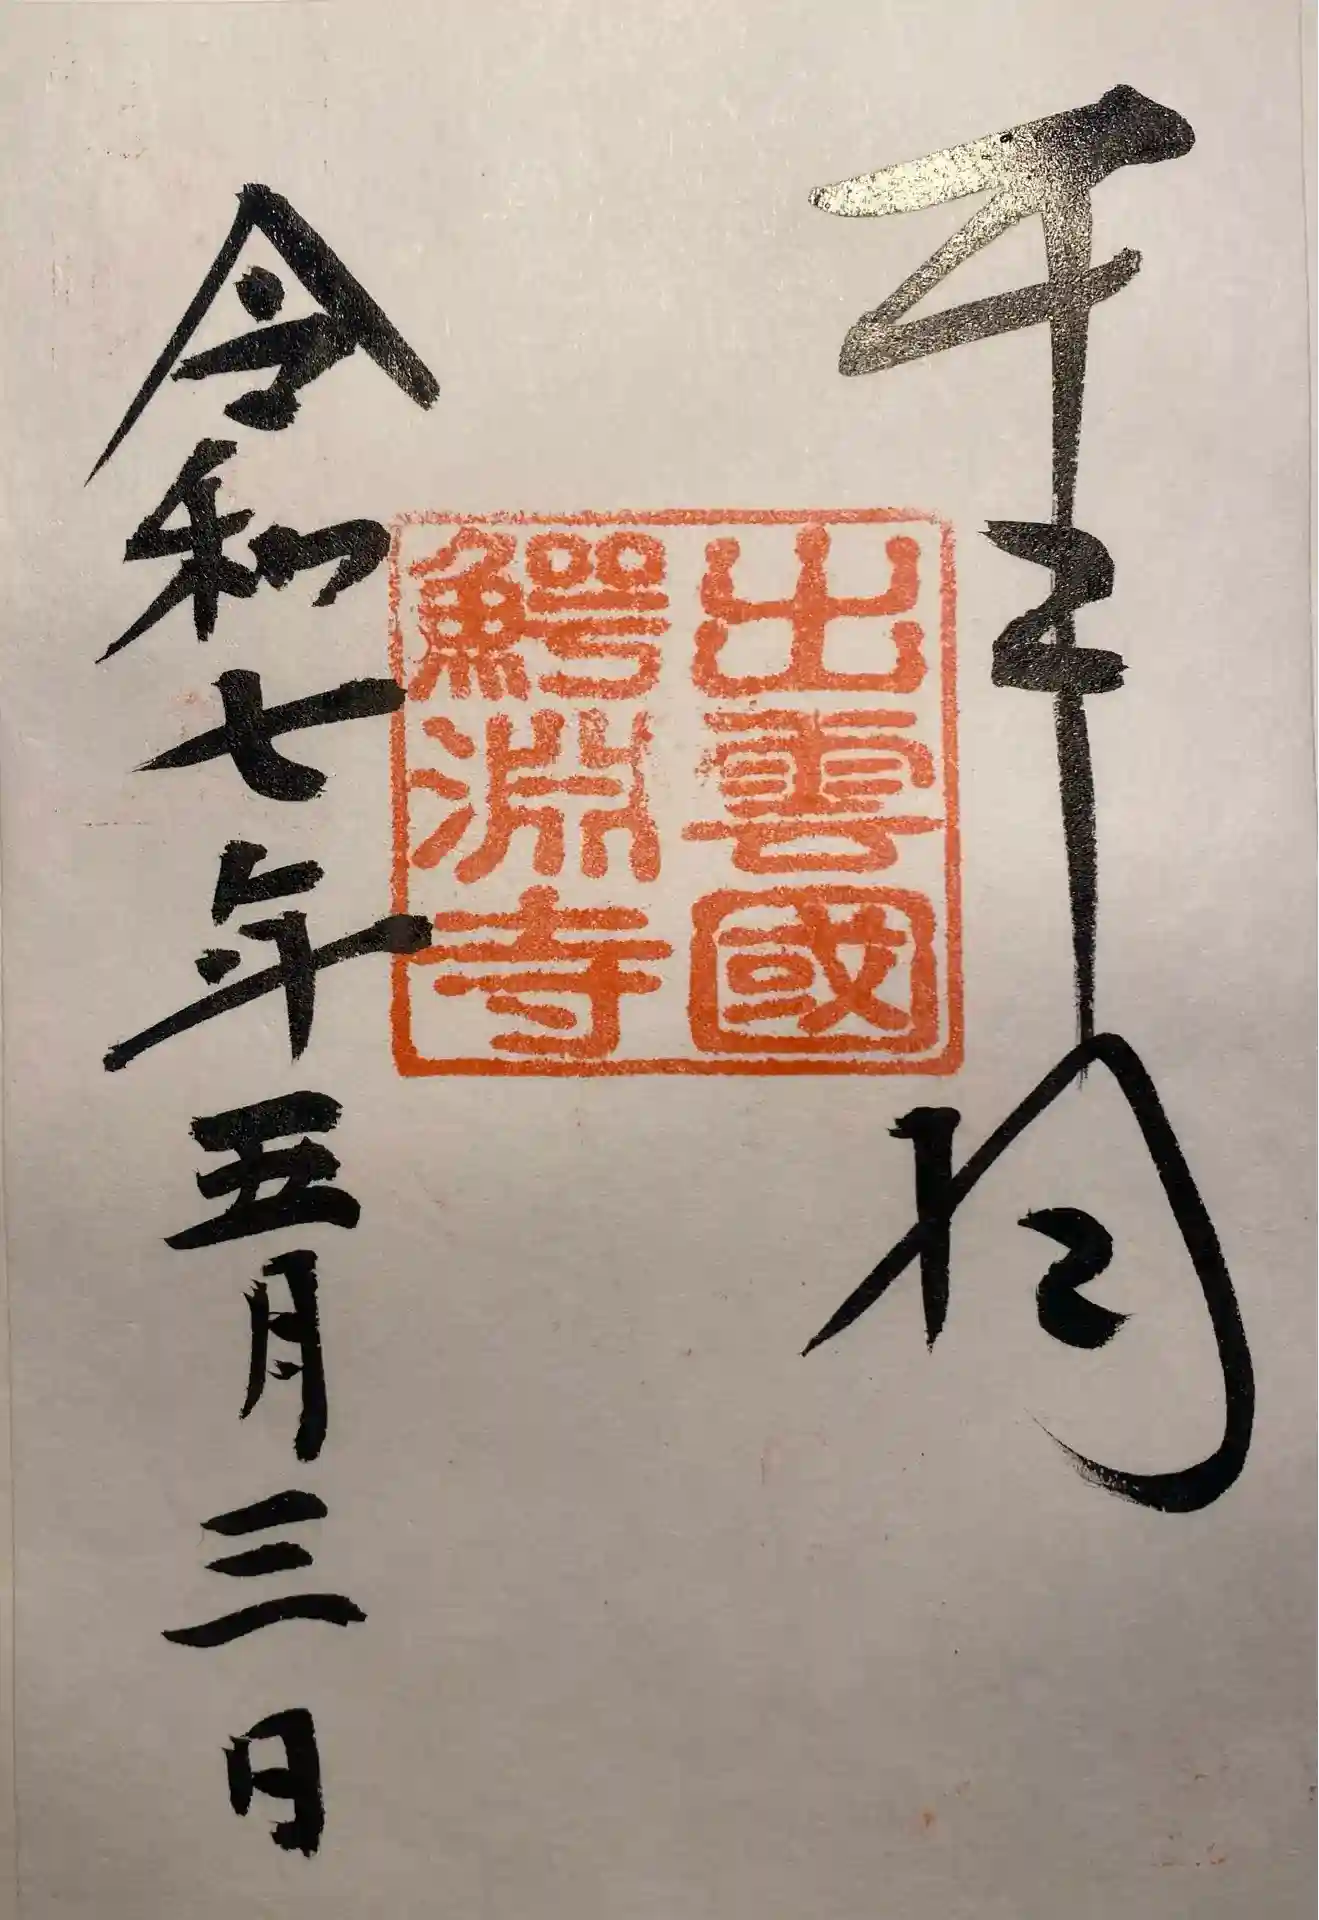 出雲國
鰐淵寺
令和七年五月三日